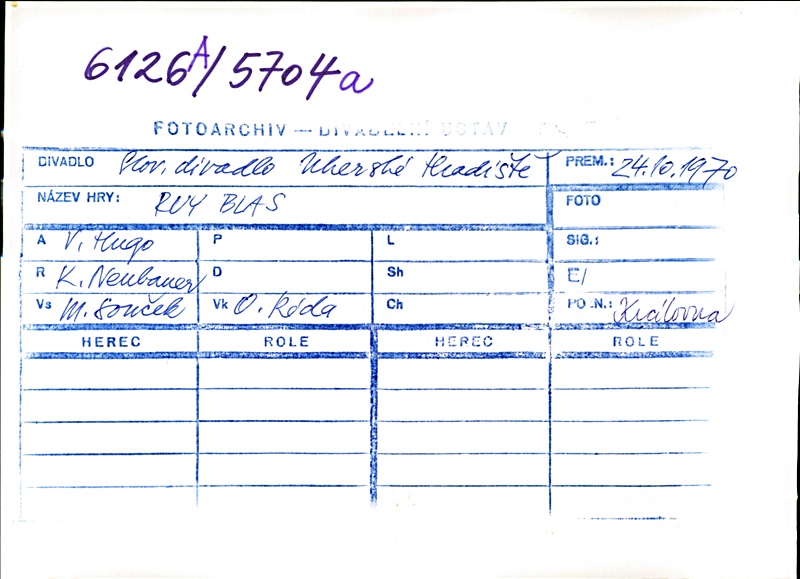 6126A/5704a
FOTOARCHIV — DIVADELNÍ ÚSTAV
DIVADLO Slov. divadlo Uherské Hradiště PREM.: 24.10.1970
NÁZEV HRY: RUY BLAS FOTO
A V. Hugo P L SIG.:
R K. Neubauer D Sh E/
Vs M. Souček Vk O. Róda Ch POZN.: Královna
HEREC ROLE HEREC ROLE